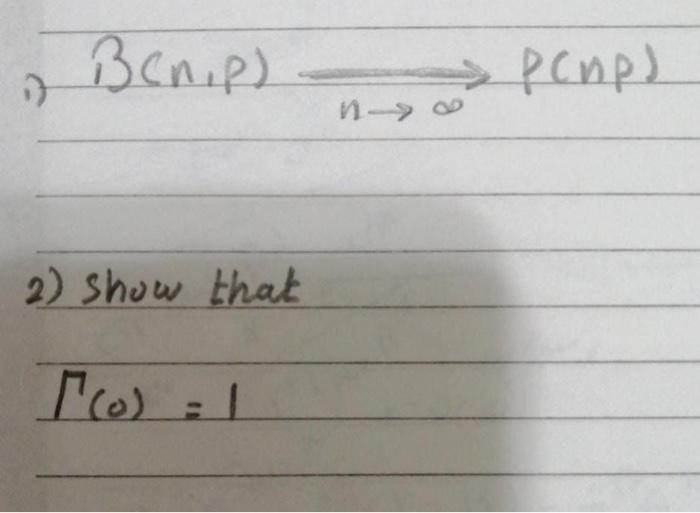 1) B(n,p) ⟶ P(np)
n → ∞
2) show that
Γ(0) = 1